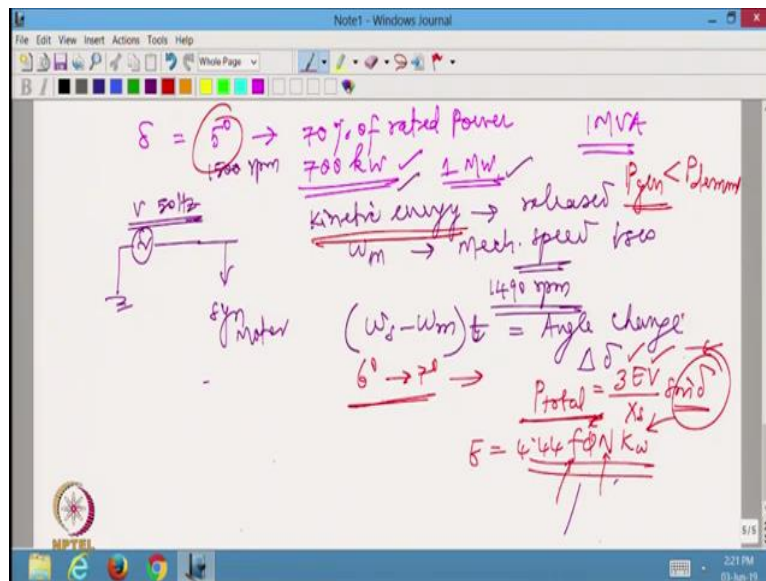 Note1 - Windows Journal
File Edit View Insert Actions Tools Help
Whole Page
B I
δ = 5° → 70% of rated power 1 MVA
1500 rpm 700 kW ✓ 1 MW ✓ Pgen <
V 50Hz Kinetic energy → released
ωm → Mech. speed
1490 rpm
syn Motor (ωs - ωm)t = Angle change
Δδ ✓ ✓
6° → 7° →
Ptotal = 3EV/Xs sinδ
E = 4.44 f Φ N Kw
5/5
NPTEL
2:21 PM
03-Jun-19